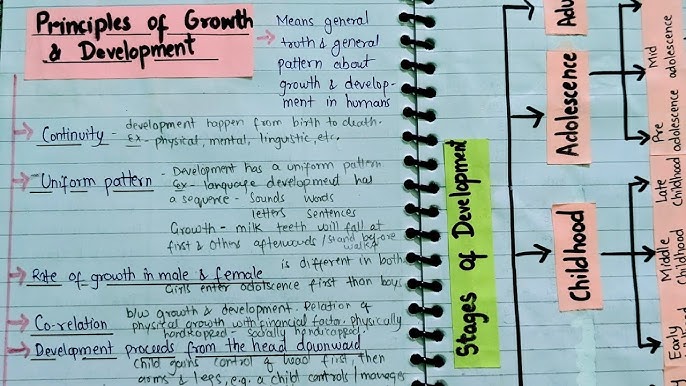 Principles of Growth
& Development
Means general
truth & general
pattern about
growth & develop-
ment in humans
Continuity - development happen from birth to death.
Ex - physical, mental, linguistic, etc.
Uniform pattern - Development has a uniform pattern
Ex - language development has
a sequence - Sounds words
letters sentences
Growth - milk teeth will fall at
first & others afterwords / stand before
walk
Rate of growth in male & female is different in both
Girls enter adolescence first than boys
Co-relation b/w growth & development. Relation of
physical growth with financial factor. physically
handicapped - socially handicapped.
Development proceeds from the head downward
child gains control of head first, then
arms & legs, e.g. a child controls / manages
Stages of Development
Adu
Adolescence
Mid
adolescence
Pre
adolescence
Childhood
Late
childhood
Middle
childhood
Early